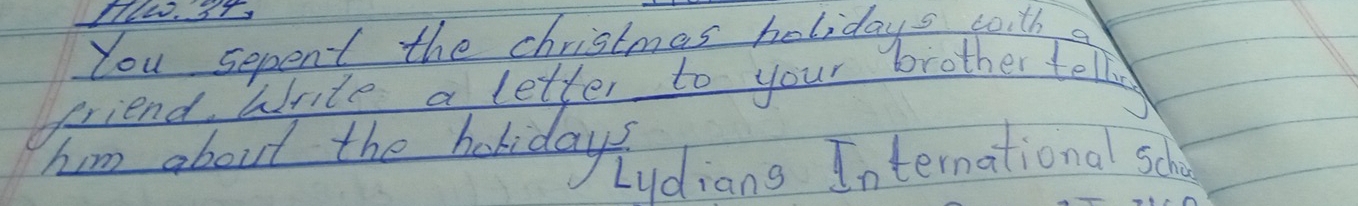 H/W. 34,
You sepent the christmas holidays with a
friend. Write a letter to your brother telling
him about the holidays.
Lydians International